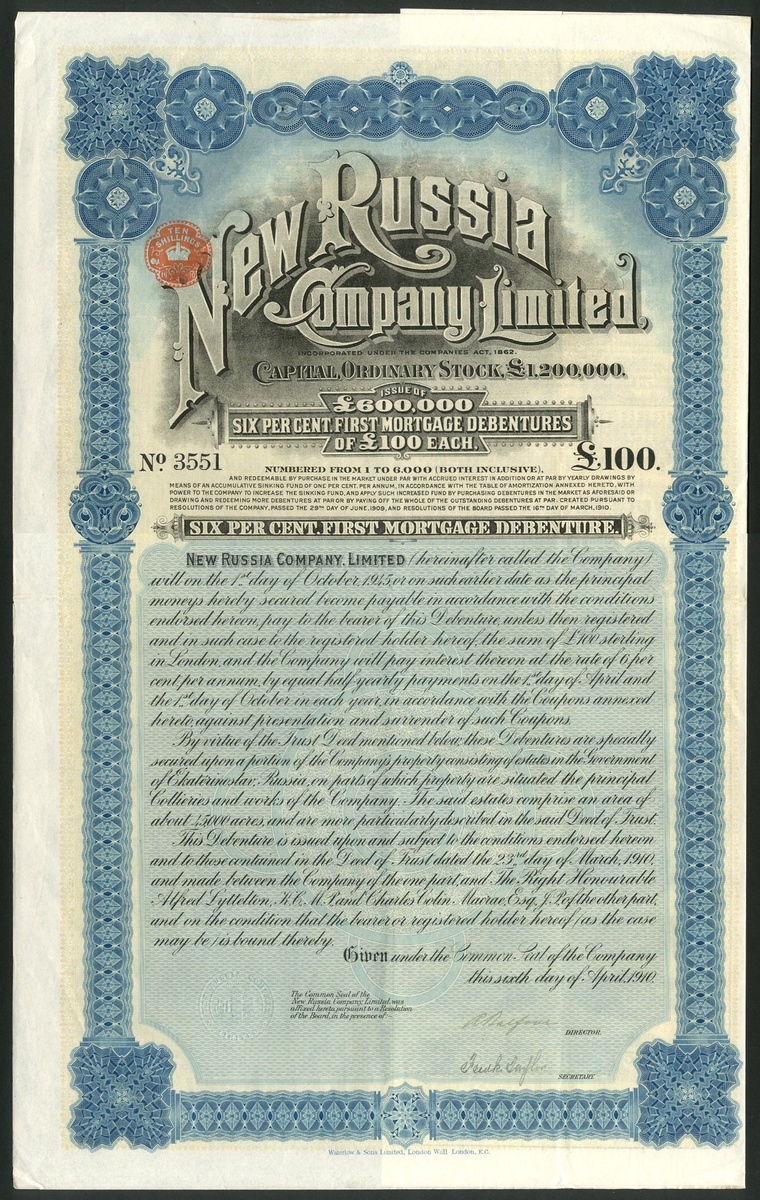 TEN
SHILLINGS
New Russia
Company Limited,
INCORPORATED UNDER THE COMPANIES ACT, 1862.
CAPITAL, ORDINARY STOCK, £1,200,000.
ISSUE OF
£600,000
SIX PER CENT. FIRST MORTGAGE DEBENTURES
OF £100 EACH.
No. 3551
£100.
NUMBERED FROM 1 TO 6.000 (BOTH INCLUSIVE),
AND REDEEMABLE BY PURCHASE IN THE MARKET UNDER PAR WITH ACCRUED INTEREST IN ADDITION OR AT PAR BY YEARLY DRAWINGS BY
MEANS OF AN ACCUMULATIVE SINKING FUND OF ONE PER CENT. PER ANNUM, IN ACCORDANCE WITH THE TABLE OF AMORTIZATION ANNEXED HERETO, WITH
POWER TO THE COMPANY TO INCREASE THE SINKING FUND, AND APPLY SUCH INCREASED FUND BY PURCHASING DEBENTURES IN THE MARKET AS AFORESAID OR
DRAWING AND REDEEMING MORE DEBENTURES AT PAR OR BY PAYING OFF THE WHOLE OF THE OUTSTANDING DEBENTURES AT PAR. CREATED PURSUANT TO
RESOLUTIONS OF THE COMPANY, PASSED THE 29TH DAY OF JUNE, 1909, AND RESOLUTIONS OF THE BOARD PASSED THE 16TH DAY OF MARCH, 1910.
SIX PER CENT. FIRST MORTGAGE DEBENTURE.
NEW RUSSIA COMPANY, LIMITED (hereinafter called the Company)
will on the 1st day of October, 1945, or on such earlier date as the principal
moneys hereby secured become payable in accordance with the conditions
endorsed hereon, pay to the bearer of this Debenture, unless then registered
and in such case to the registered holder hereof, the sum of £100 sterling
in London, and the Company will pay interest thereon at the rate of 6 per
cent per annum, by equal half yearly payments on the 1st day of April and
the 1st day of October in each year, in accordance with the Coupons annexed
hereto, against presentation and surrender of such Coupons.
By virtue of the Trust Deed mentioned below, these Debentures are specially
secured upon a portion of the Company's property consisting of estates in the Government
of Ekaterinoslav, Russia, on parts of which property are situated the principal
Collieries and works of the Company. The said estates comprise an area of
about 45,000 acres, and are more particularly described in the said Deed of Trust.
This Debenture is issued upon and subject to the conditions endorsed hereon
and to those contained in the Deed of Trust dated the 23rd day of March, 1910,
and made between the Company of the one part, and The Right Honourable
Alfred Lyttelton, K.C. M.P. and Charles Colin Macrae, Esq. J.P. of the other part,
and on the condition that the bearer or registered holder hereof (as the case
may be) is bound thereby.
Given under the Common Seal of the Company
this sixth day of April, 1910.
The Common Seal of the
New Russia Company, Limited, was
affixed hereto pursuant to a Resolution
of the Board, in the presence of:—
DIRECTOR.
SECRETARY.
Waterlow & Sons Limited, London Wall London, E.C.